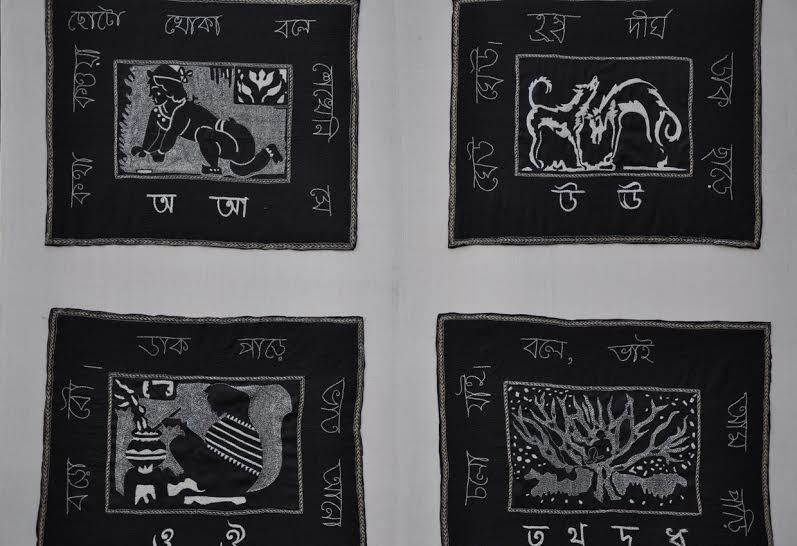 ছোটো খোকা বলে
অ আ
শেখেনি সে
কথা কওয়া
হ্রস্ব দীর্ঘ
উ ঊ
ডাক ছাড়ে
ঘেউ ঘেউ।
ডাক পাড়ে
ও ঔ
ভাত আনো
বড়ো বৌ।
বলে, ভাই
ত থ দ ধ
আম পাড়ি
চলো যাই।